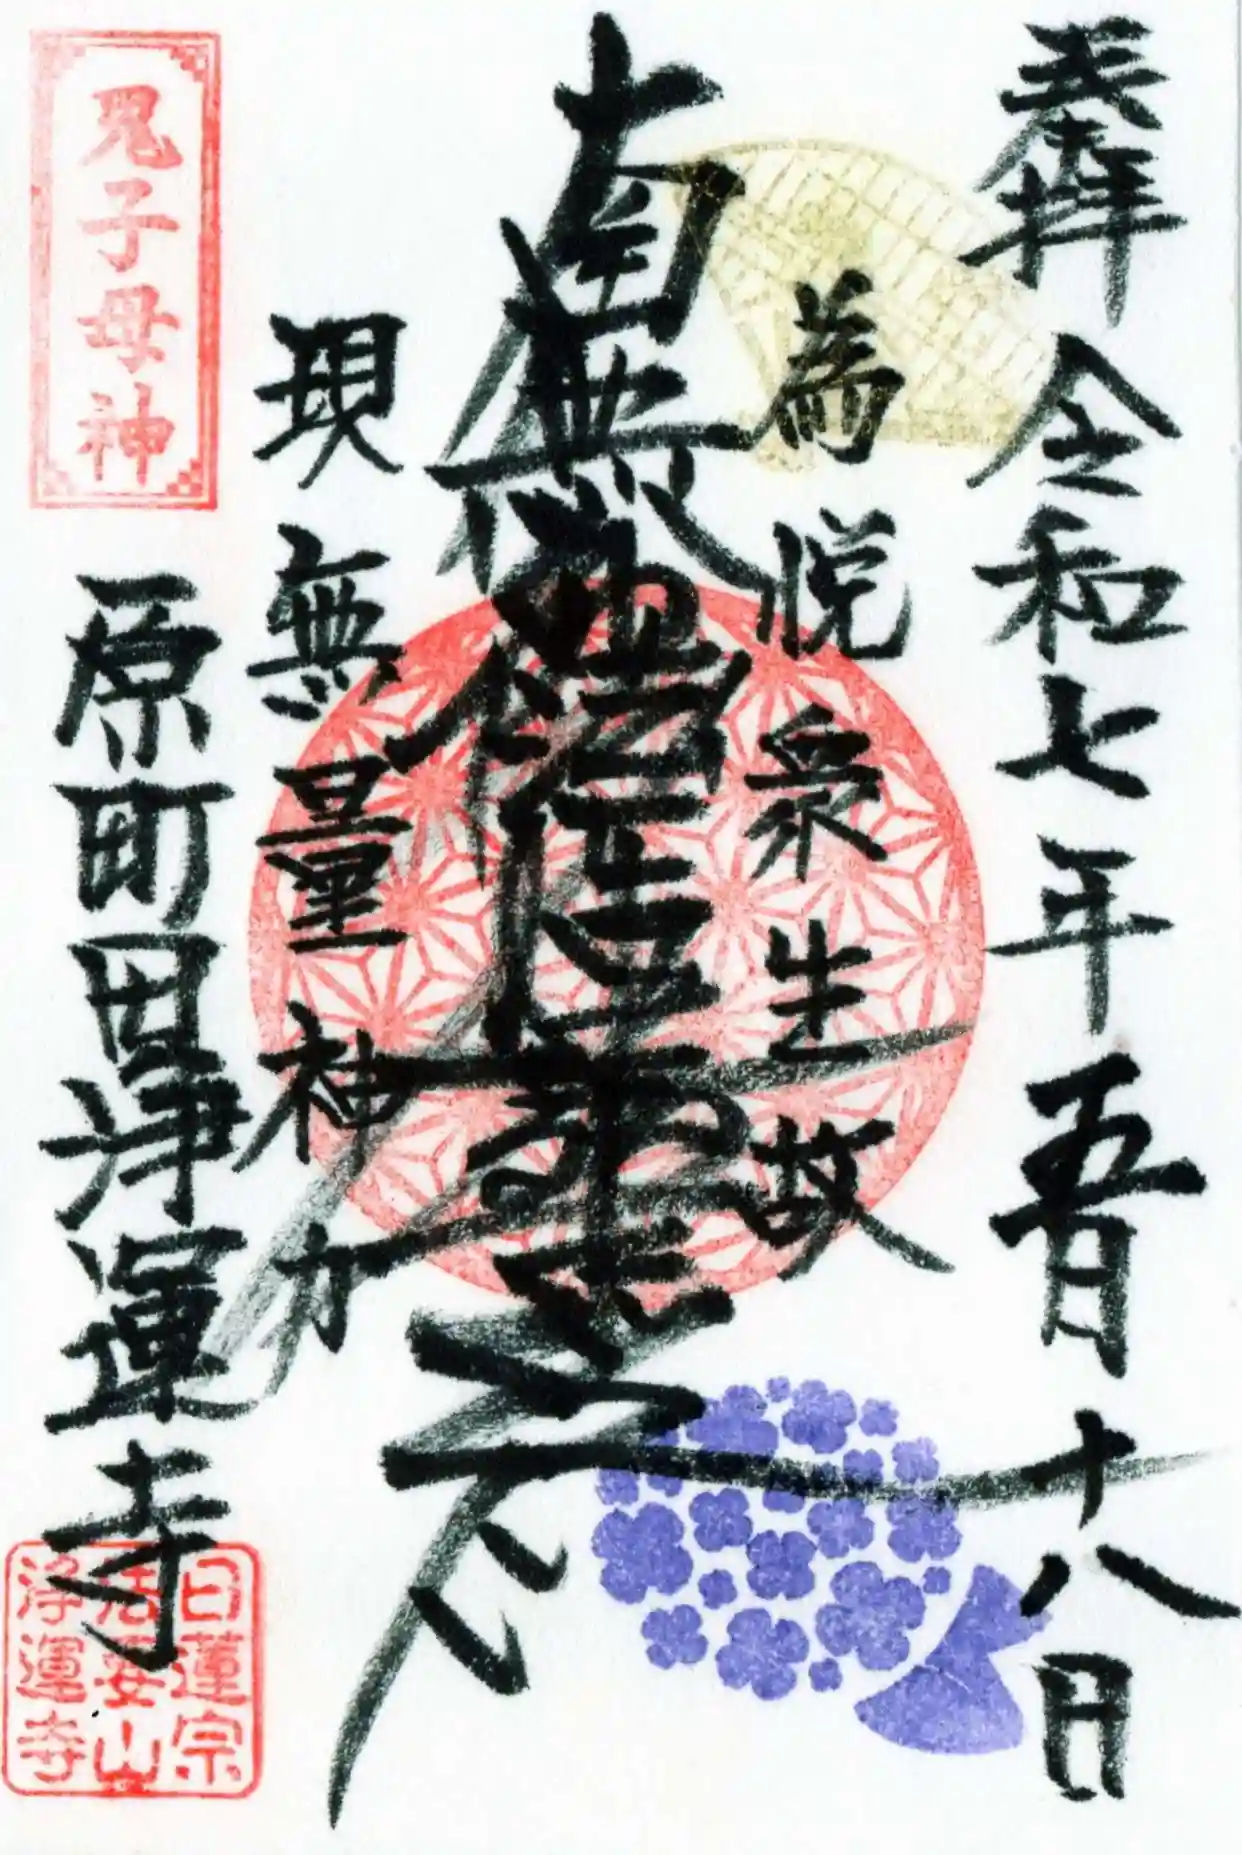 奉拝 令和七年五月十八日
為悦衆生故
南無
現無量神力
鬼子母神
原町田浄運寺
日蓮宗
法要山
浄運寺